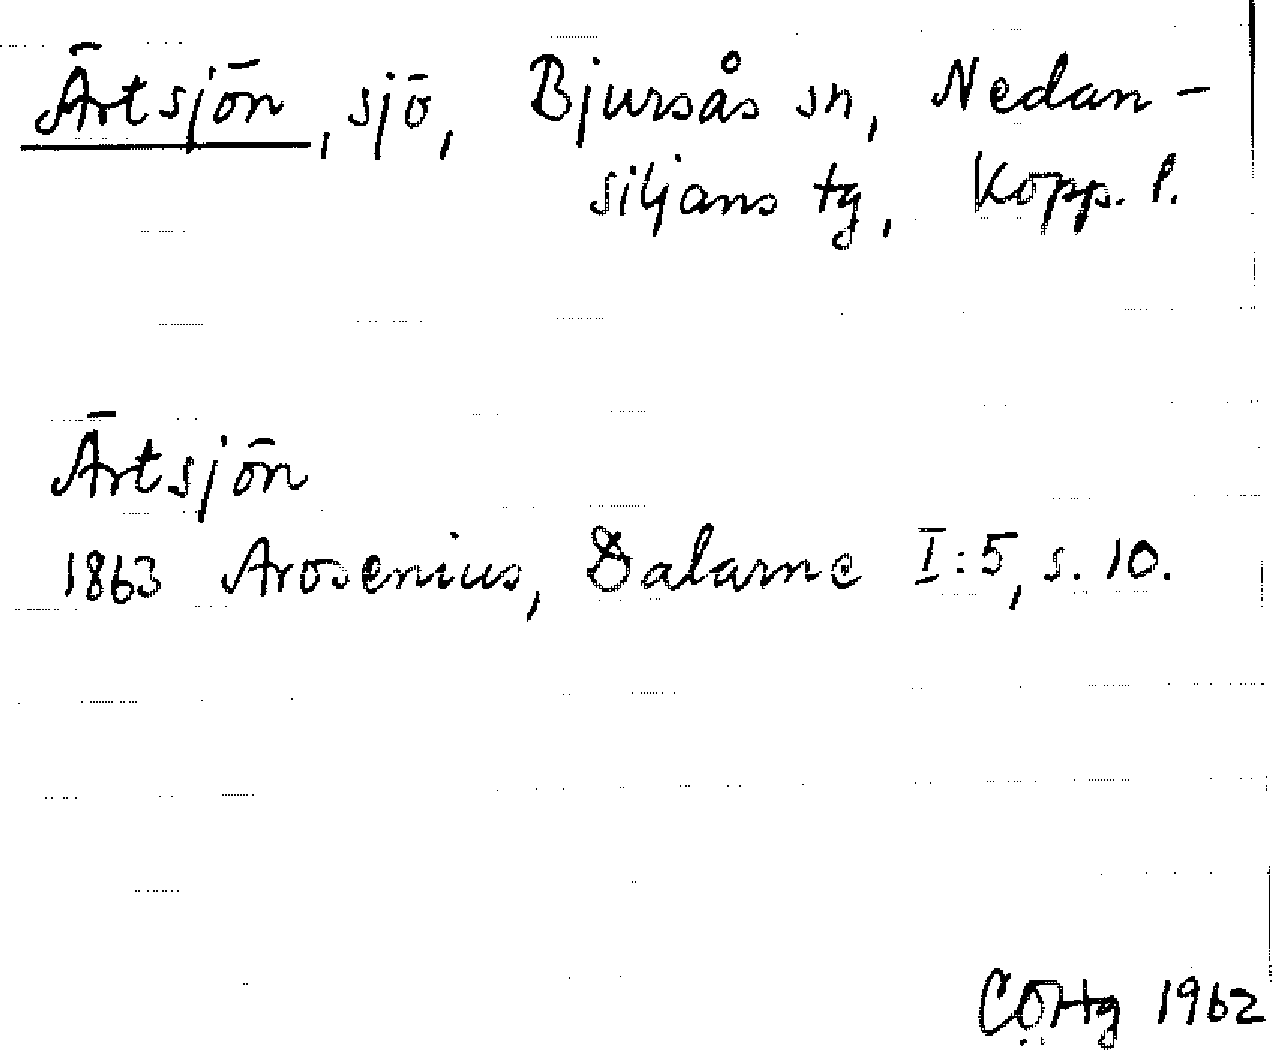 Ärtsjön, sjö, Bjursås sn, Nedan-
siljans tg, Kopp. l.
Ärtsjön
1863 Arosenius, Dalarne I:5, s. 10.
1962